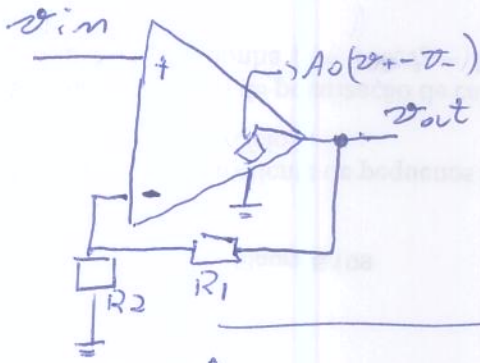 vin
+
A0(v+ - v-)
vout
-
R1
R2